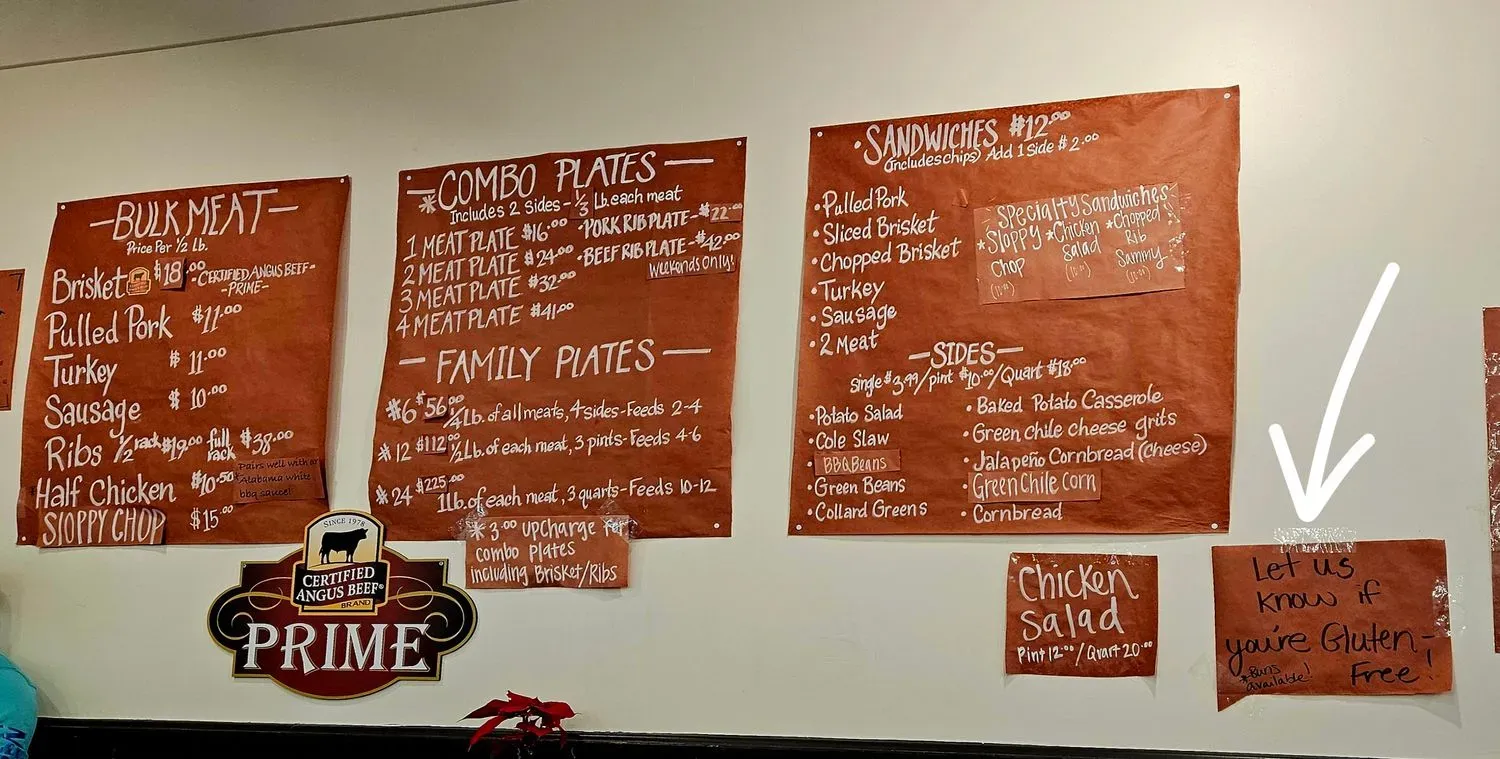 -BULK MEAT-
Price Per ½ Lb.
Brisket $18.00 •CERTIFIED ANGUS BEEF•
-PRIME-
Pulled Pork $11.00
Turkey $ 11.00
Sausage $ 10.00
Ribs ½ rack $19.00 full rack $38.00
Half Chicken $10.50
Pairs well with our
Alabama white
bbq sauce!
SLOPPY CHOP $15.00
SINCE 1978
CERTIFIED
ANGUS BEEF®
BRAND
PRIME
-COMBO PLATES-
*Includes 2 Sides-⅓ Lb. each meat
1 MEAT PLATE $16.00
2 MEAT PLATE $24.00
3 MEAT PLATE $32.00
4 MEAT PLATE $41.00
•PORK RIB PLATE-$22.00
•BEEF RIB PLATE-$42.00
Weekends Only!
-FAMILY PLATES-
*6 $56.00 ¼Lb. of all meats, 4 sides-Feeds 2-4
*12 $112.00 ½Lb. of each meat, 3 pints-Feeds 4-6
*24 $225.00 1Lb. of each meat, 3 quarts-Feeds 10-12
*3.00 upcharge for
combo plates
including Brisket/Ribs
•SANDWICHES $12.00
(includes chips) Add 1 Side $2.00
•Pulled Pork
•Sliced Brisket
•Chopped Brisket
•Turkey
•Sausage
•2 Meat
Specialty Sandwiches
*Sloppy
Chop
*Chicken
Salad
*Chopped
Rib
Sammy
-SIDES-
Single $3.99/pint $10.00/Quart $18.00
•Potato Salad
•Cole Slaw
BBQ Beans
•Green Beans
•Collard Greens
•Baked Potato Casserole
•Green chile cheese grits
•Jalapeño Cornbread (cheese)
•Green Chile Corn
•Cornbread
Chicken
Salad
Pint 12.00/Quart 20.00
Let us
know if
you're Gluten-
Free!
*Buns
available!